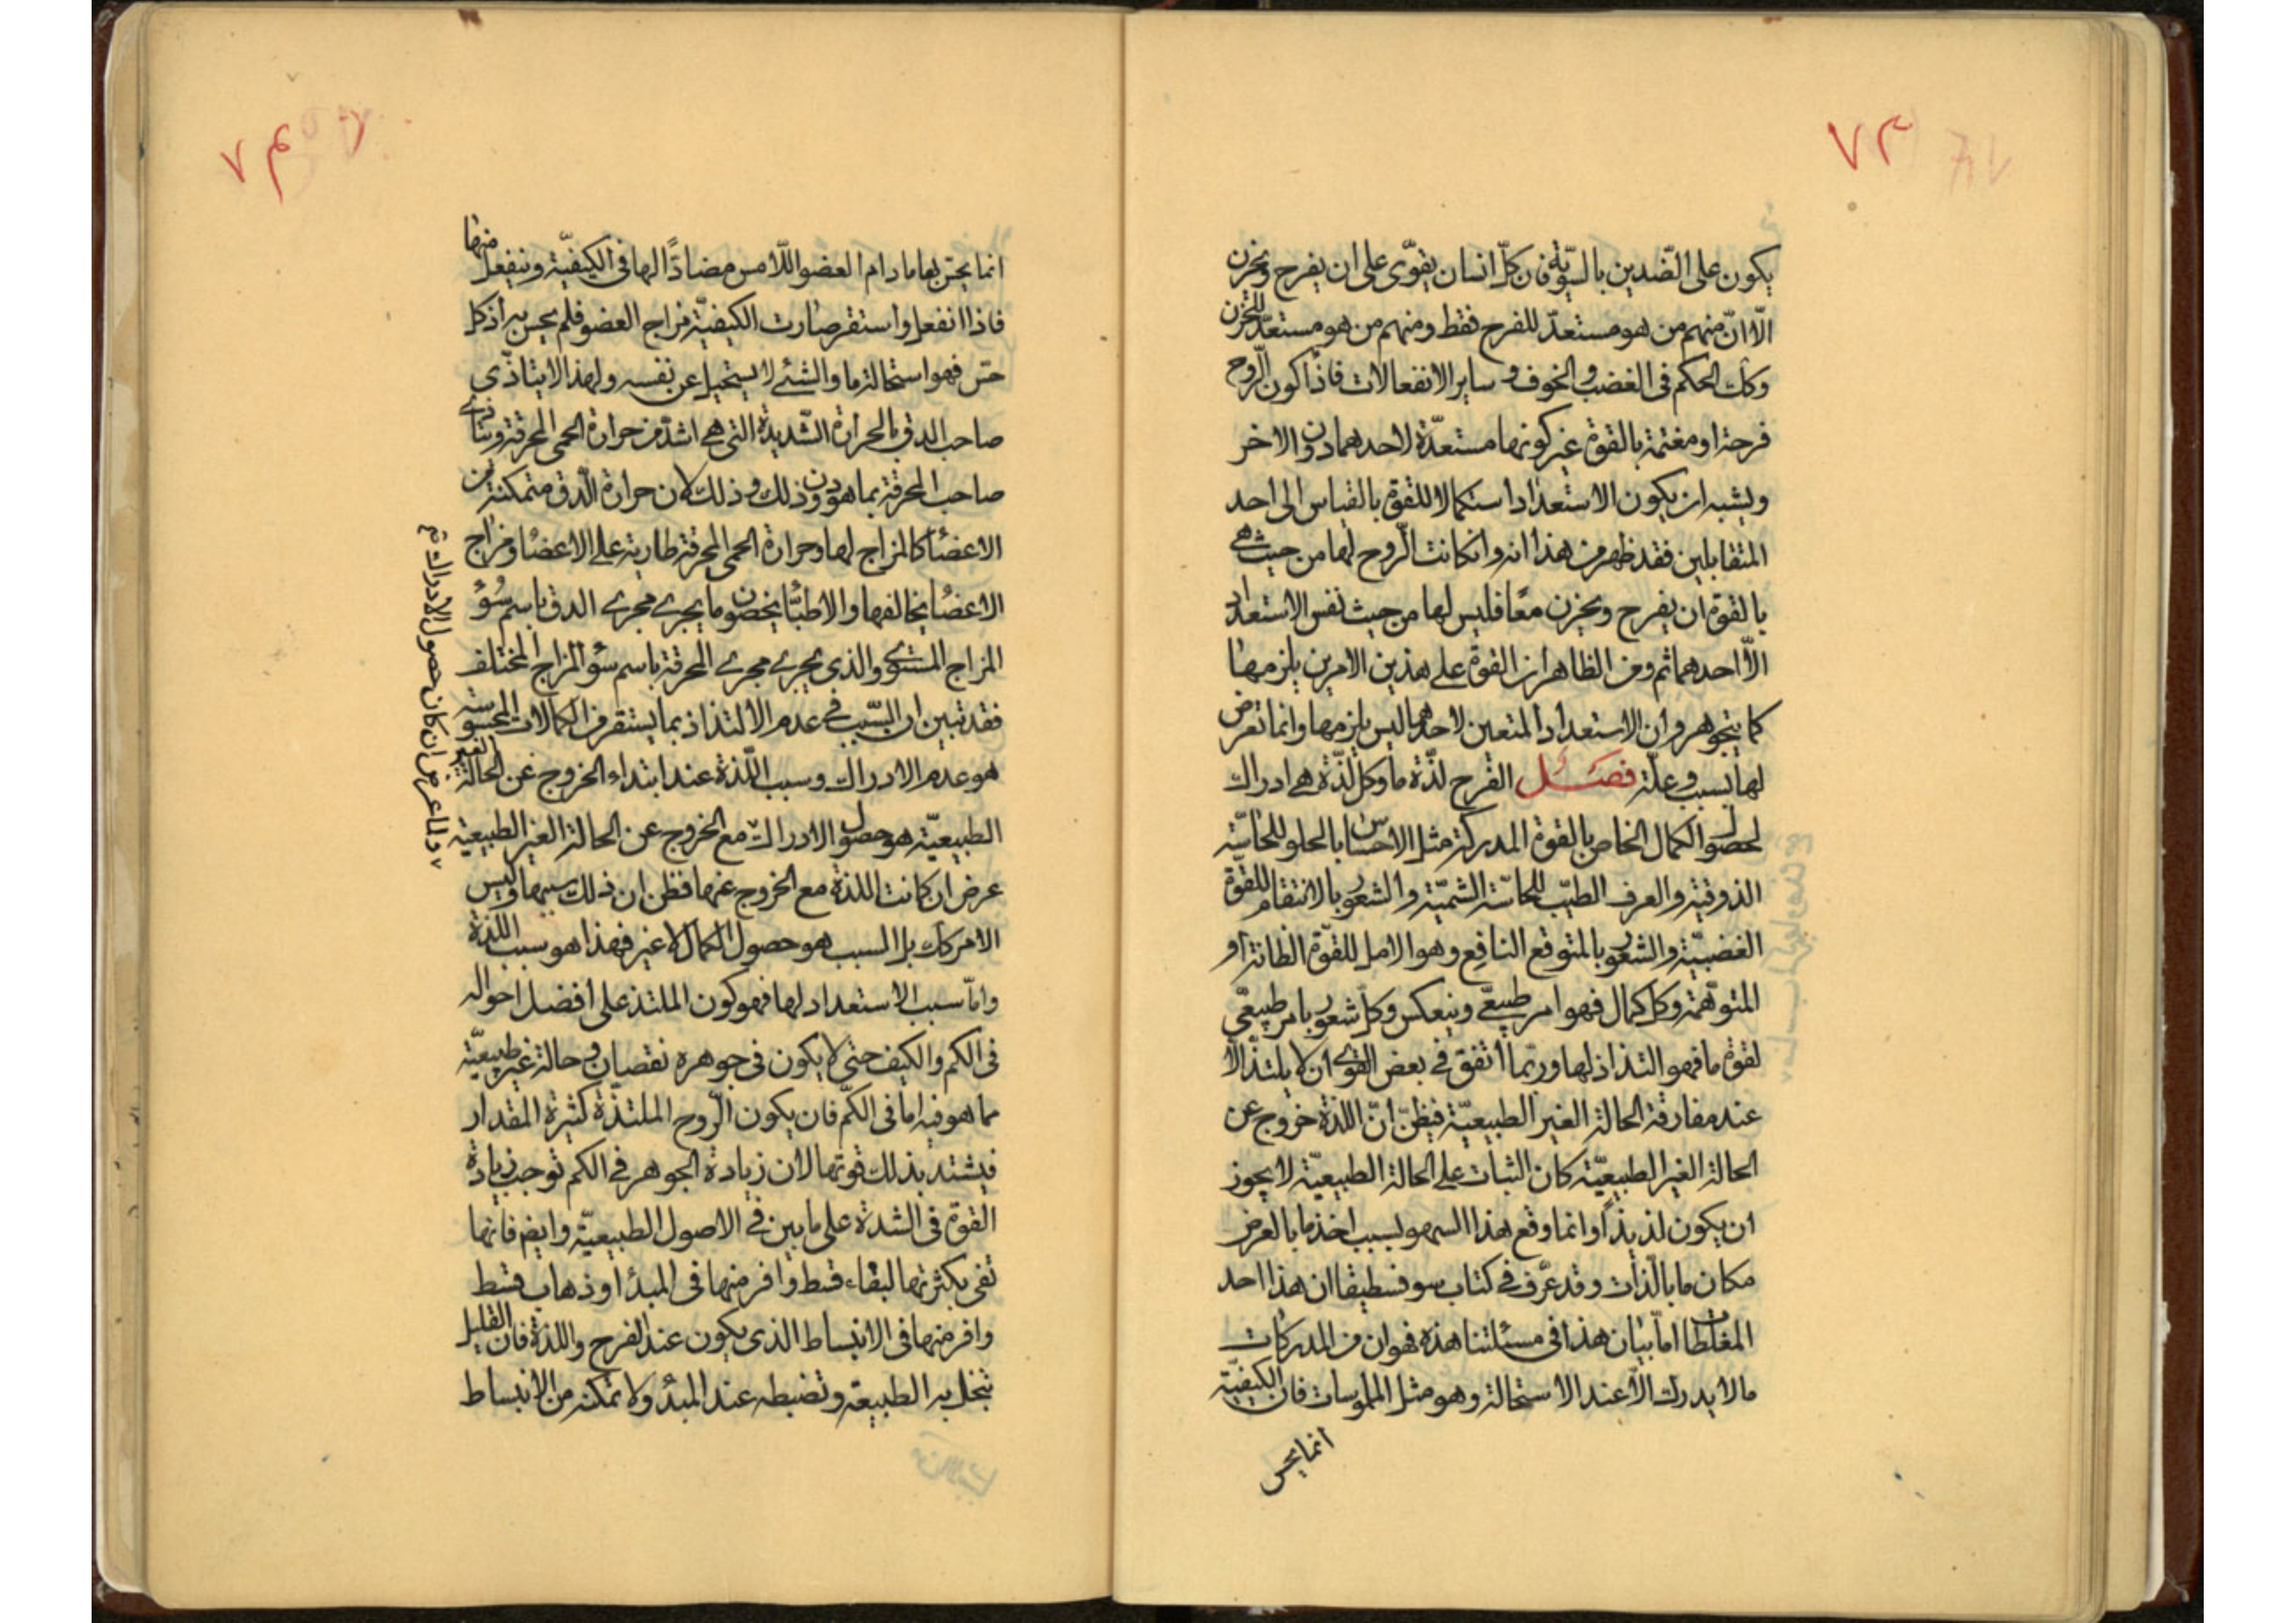 ٧٣
يكون على الضّدين بالسّويّة فان كلّ انسان يقوّى على ان يفرح ويحزن
الّا انّ منهم من هو مستعدّ للفرح فقط ومنهم من هو مستعدّ للحزن
وكك الحكم فى الغضب والخوف وساير الانفعالات فاذا كون الرّوح
فرحة او مغتمة بالقوة غير كونها مستعدّة لاحدهما دون الاخر
ويشبه ان يكون الاستعداد استكمالا للقوة بالقياس الى احد
المتقابلين فقد ظهر من هذا انه وان كانت الرّوح لها من حيث هى
بالقوة ان يفرح ويحزن معًا فليس لها من حيث نفس الاستعداد
الّا احدهما ثم ومن الظاهر ان القوة على هذين الامرين يلزمها
كما يتجوهر وان الاستعداد المتعين لاحدهما ليس يلزمها وانما تعرض
لها بسبب وعلّة فصل الفرح لذّة ما وكل لذّة هى ادراك
لحصول الكمال الخاص بالقوة المدركة مثل الاحساس بالحلو للحاسّة
الذوقية والعرف الطيّب للحاسّة الشمّية والشعور بالانتقام للقوة
الغضبيّة والشعور بالمتوقع النافع وهو الامل للقوّة الظانة او
المتوهّمة وكل كمال فهو امر طبيعّى وينعكس وكلّ شعور بامر طبيعّى
لقوة ما فهو التذاذ لها وربّما اتفق فى بعض القوى ان لا يلتذّ الّا
عند مفارقة الحالة الغير الطبيعيّة فيظنّ انّ اللذة خروج عن
الحالة الغير الطبيعيّة كان الثبات على الحالة الطبيعيّة لا يجوز
ان يكون لذيذًا وانما وقع هذا السهو بسبب اخذ ما بالعرض
مكان ما بالذّات وقد عرّف فى كتاب سوفسطيقا ان هذا احد
المغلطات امّا بيان هذا فى مسئلتنا هذه فهو ان من المدركات
ما لا يدرك الّا عند الاستحالة وهو مثل الملموسات فان الكيفيّة
انما يحس
٧٤
انما يحسّ بها ما دام العضو اللّامس مضادًّا لها فى الكيفيّة وينفعل منها
فاذا انفعل واستقر صارت الكيفيّة مزاج العضو فلم يحس به اذ كل
حسّ فهو استحالة ما والشئ لا يستحيل عن نفسه ولهذا لا يتاذّى
صاحب الدق بالحرارة الشّديدة التى هى اشدّ من حرارة الحمى المحرقة ويتاذى
صاحب المحرقة بما هو دون ذلك وذلك لان حرارة الدّق متمكنة من
الاعضا كالمزاج لها وحرارة الحمى المحرقة طارية على الاعضا ومزاج
الاعضا يخالفها والاطبّا يخصون ما يجرى مجرى الدق باسم سُوء
المزاج المستوى والذى يجرى مجرى المحرقة باسم سوء المزاج المختلف
فقد تبين ان السّبب فى عدم الالتذاذ بما يستقر من الكمالات المحسوسة
هو عدم الادراك وسبب اللّذة عند ابتداء الخروج عن الحالة الغير
الطبيعيّة هو حصول الادراك مع الخروج عن الحالة الغير الطبيعية
عرض ان كانت اللذة مع الخروج عنها فظن ان ذلك سببها وليس
الامر كك بل السبب هو حصول الكمال لا غير فهذا هو سبب اللذة
وامّا سبب الاستعداد لها فهو كون الملتذ على افضل احواله
فى الكم والكيف حتى لا يكون فى جوهره نقصان وحالة غير طبيعيّة
مما هو فيه اما فى الكمّ فان يكون الرّوح الملتذّة كثيرة المقدار
فيشتد بذلك قوتها لان زيادة الجوهر فى الكم توجب زيادة
القوة فى الشدة على ما بين فى الاصول الطبيعيّة وايض فانها
تفى بكثرتها لبقاء قسط وافر منها فى المبدأ وذهاب قسط
وافر منها فى الانبساط الذى يكون عند الفرح واللذة فان القليل
تبخل به الطبيعة وتضبطه عند المبدُ ولا تمكنه من الانبساط
ولما عرض ان كان حصول الادراك